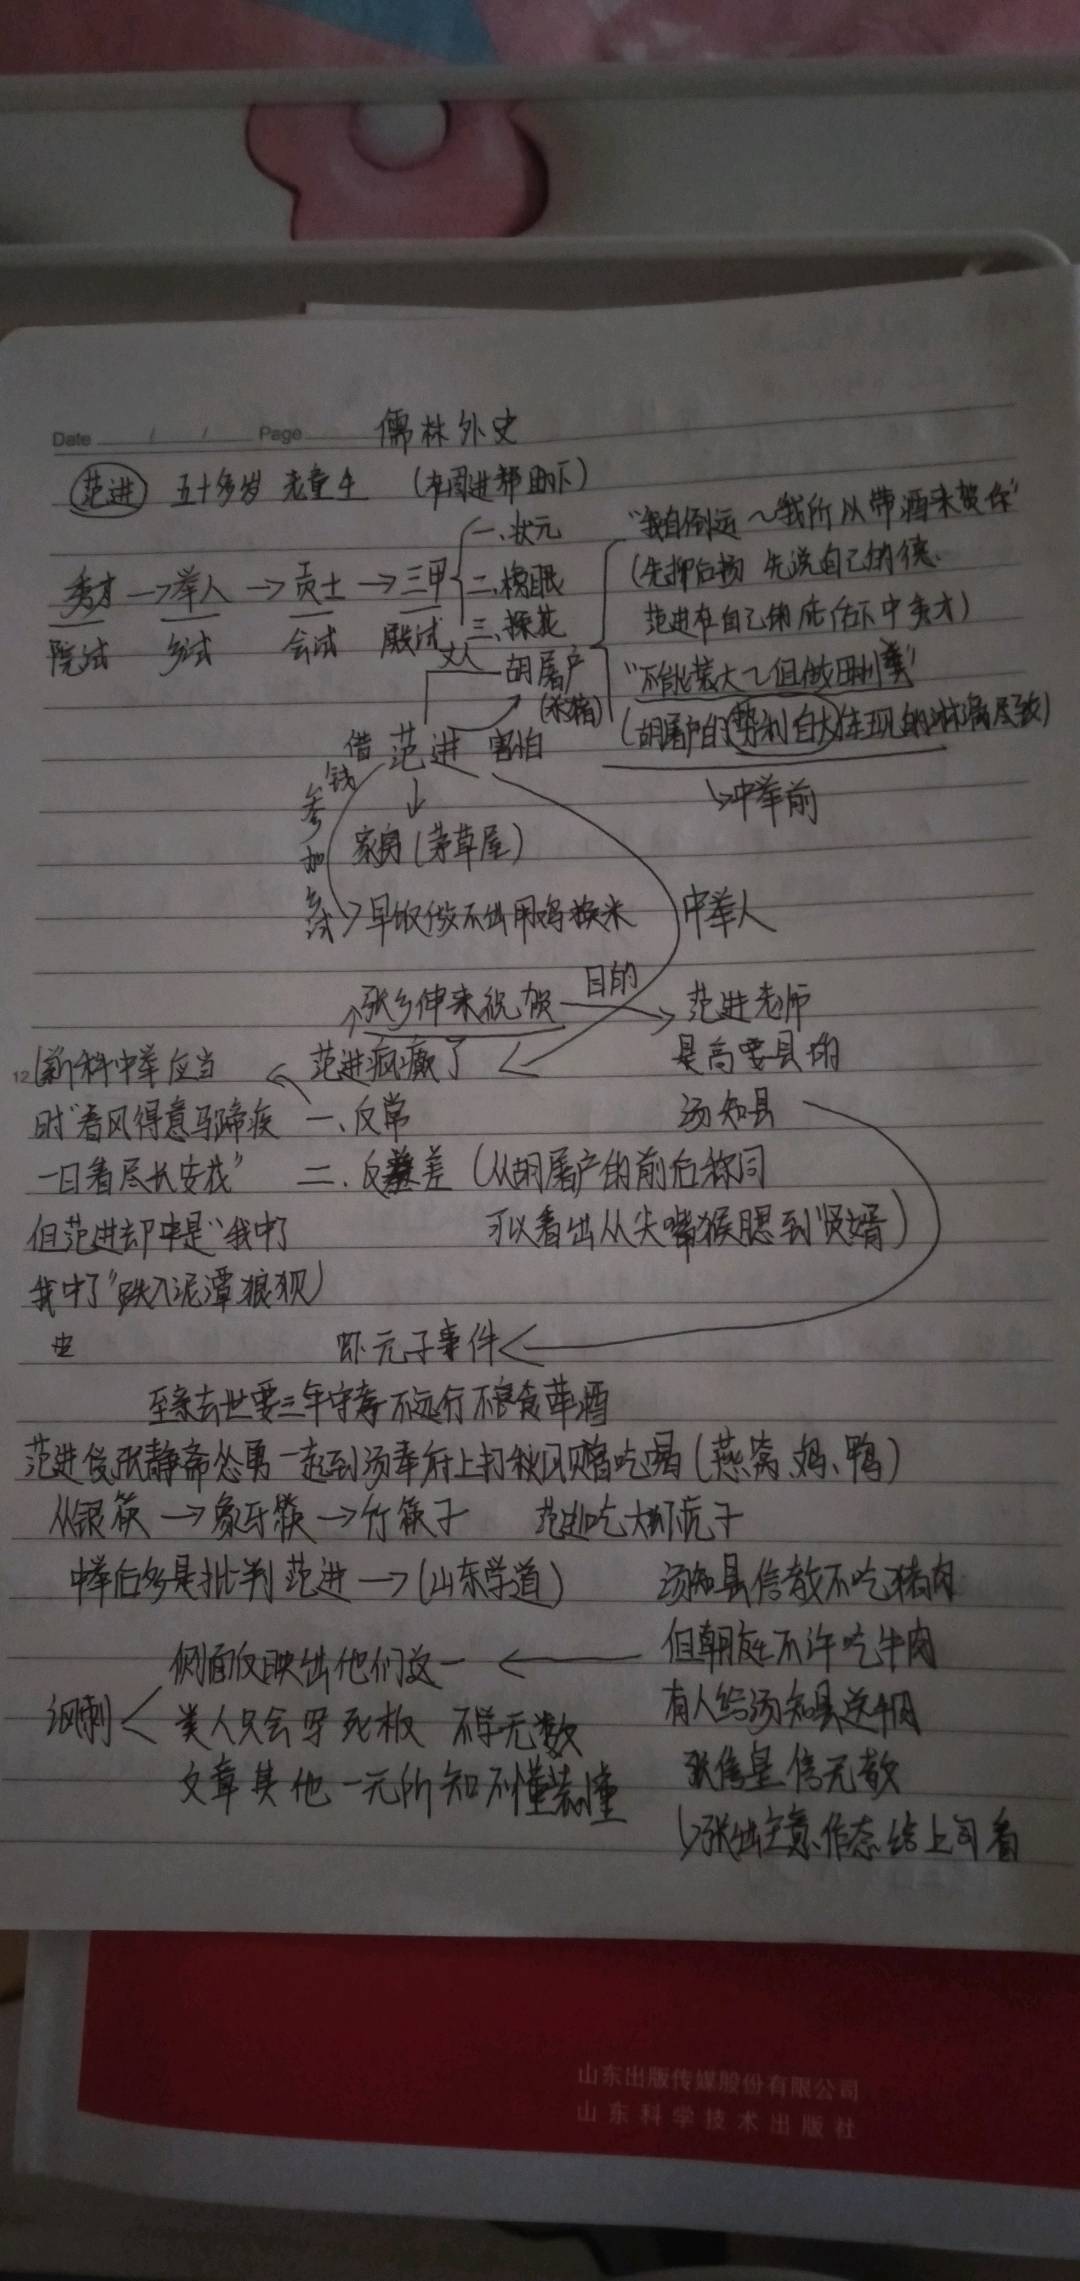 Date / / Page 儒林外史
范进 五十多岁 老童生 (在周进帮助下)
秀才→举人→贡士→三甲
院试 乡试 会试 殿试
一、状元
二、榜眼
三、探花
"我自倒运~我所以带酒来贺你"
(先抑后扬 先说自己的德、
范进在自己的庇佑下中秀才)
丈人 胡屠户
(杀猪)
"不能比菜大~但做田川粪"
(胡屠户的势利自大体现的淋漓尽致)
↳中举前
借钱 范进 害怕
参加乡试
家穷(茅草屋)
早饭做不出用鸡换米
中举人
张乡伸来祝贺 目的 范进老师
是高要县的
汤知县
范进疯癫了
一、反常
(新科中举应当
时"春风得意马蹄疾
一日看尽长安花"
但范进却是"我中了
我中了"跌入泥潭狼狈)
二、反差(从胡屠户的前后称问
可以看出从尖嘴猴腮到"贤婿)
虾元子事件
至亲去世要三年守孝 不远行 不食荤酒
范进受张静斋怂勇一起到汤奉府上打秋风赠吃喝(燕窝、鸡、鸭)
从银筷→象牙筷→竹筷子 范进吃大虾元子
中举后多是批判范进→(山东学道)
汤知县信教不吃猪肉
但朝廷不许吃牛肉
有人给汤知县送牛肉
张信皇信无教
↳张出主意、作态给上司看
讽刺
侧面反映出他们这一
类人只会写死板 不学无数
文章其他一无所知不懂装懂
12
山东出版传媒股份有限公司
山东科学技术出版社